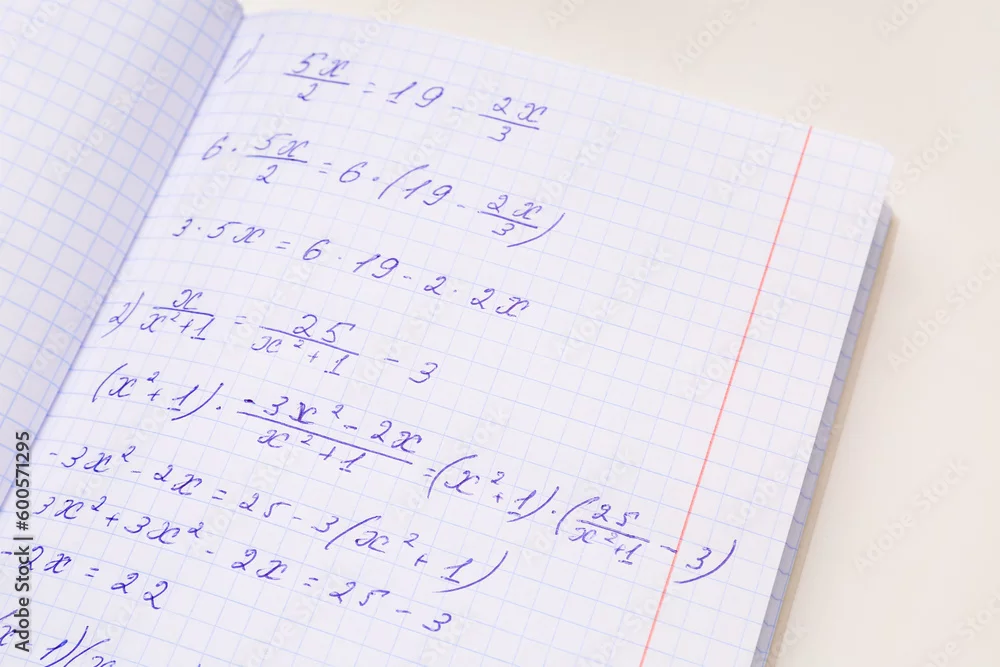 1) 5x/2 = 19 - 2x/3
6 · 5x/2 = 6 · (19 - 2x/3)
3 · 5x = 6 · 19 - 2 · 2x
2) x/x²+1 = 25/x²+1 - 3
(x²+1) · -3x²-2x/x²+1 = (x²+1) · (25/x²+1 - 3)
-3x² - 2x = 25 - 3(x²+1)
3x² + 3x² - 2x = 25 - 3
-2x = 22
1)(
Adobe Stock | #600571295